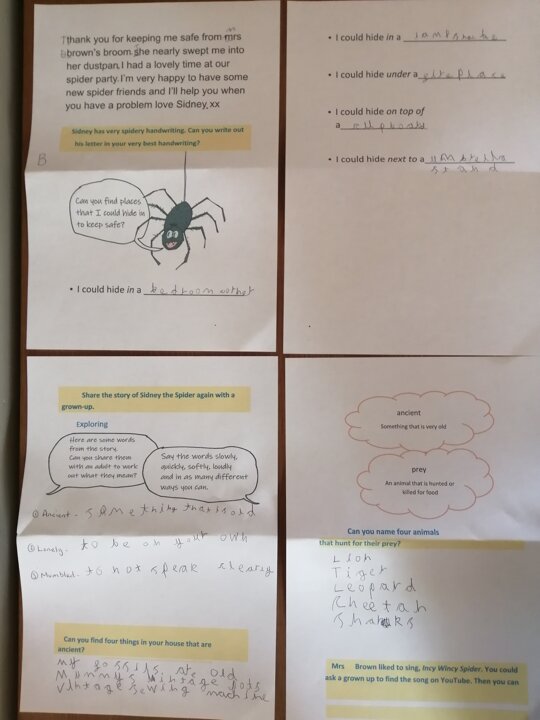 Thank you for keeping me safe from mrs
brown's broom.She nearly swept me into
her dustpan.I had a lovely time at our
spider party.I'm very happy to have some
new spider friends and I'll help you when
you have a problem love Sidney xx
Sidney has very spidery handwriting. Can you write out
his letter in your very best handwriting?
B
Can you find places
that I could hide in
to keep safe?
• I could hide in a bedroom corner
• I could hide in a lampshade
• I could hide under a
• I could hide on top of
a
• I could hide next to a
stand
Share the story of Sidney the Spider again with a
grown-up.
Exploring
Here are some words
from the story.
Can you share them
with an adult to work
out what they mean?
Say the words slowly,
quickly, softly, loudly
and in as many different
ways you can.
① Ancient - something that is old
② Lonely - to be on your own
③ Mumbled - to not speak clearly
Can you find four things in your house that are
ancient?
my fossils, at old
Mummy's vintage pots
vintage sewing machine
ancient
Something that is very old
prey
An animal that is hunted or
killed for food
Can you name four animals
that hunt for their prey?
Lion
Tiger
Leopard
Cheetah
Sharks
Mrs Brown liked to sing, Incy Wincy Spider. You could
ask a grown up to find the song on YouTube. Then you can